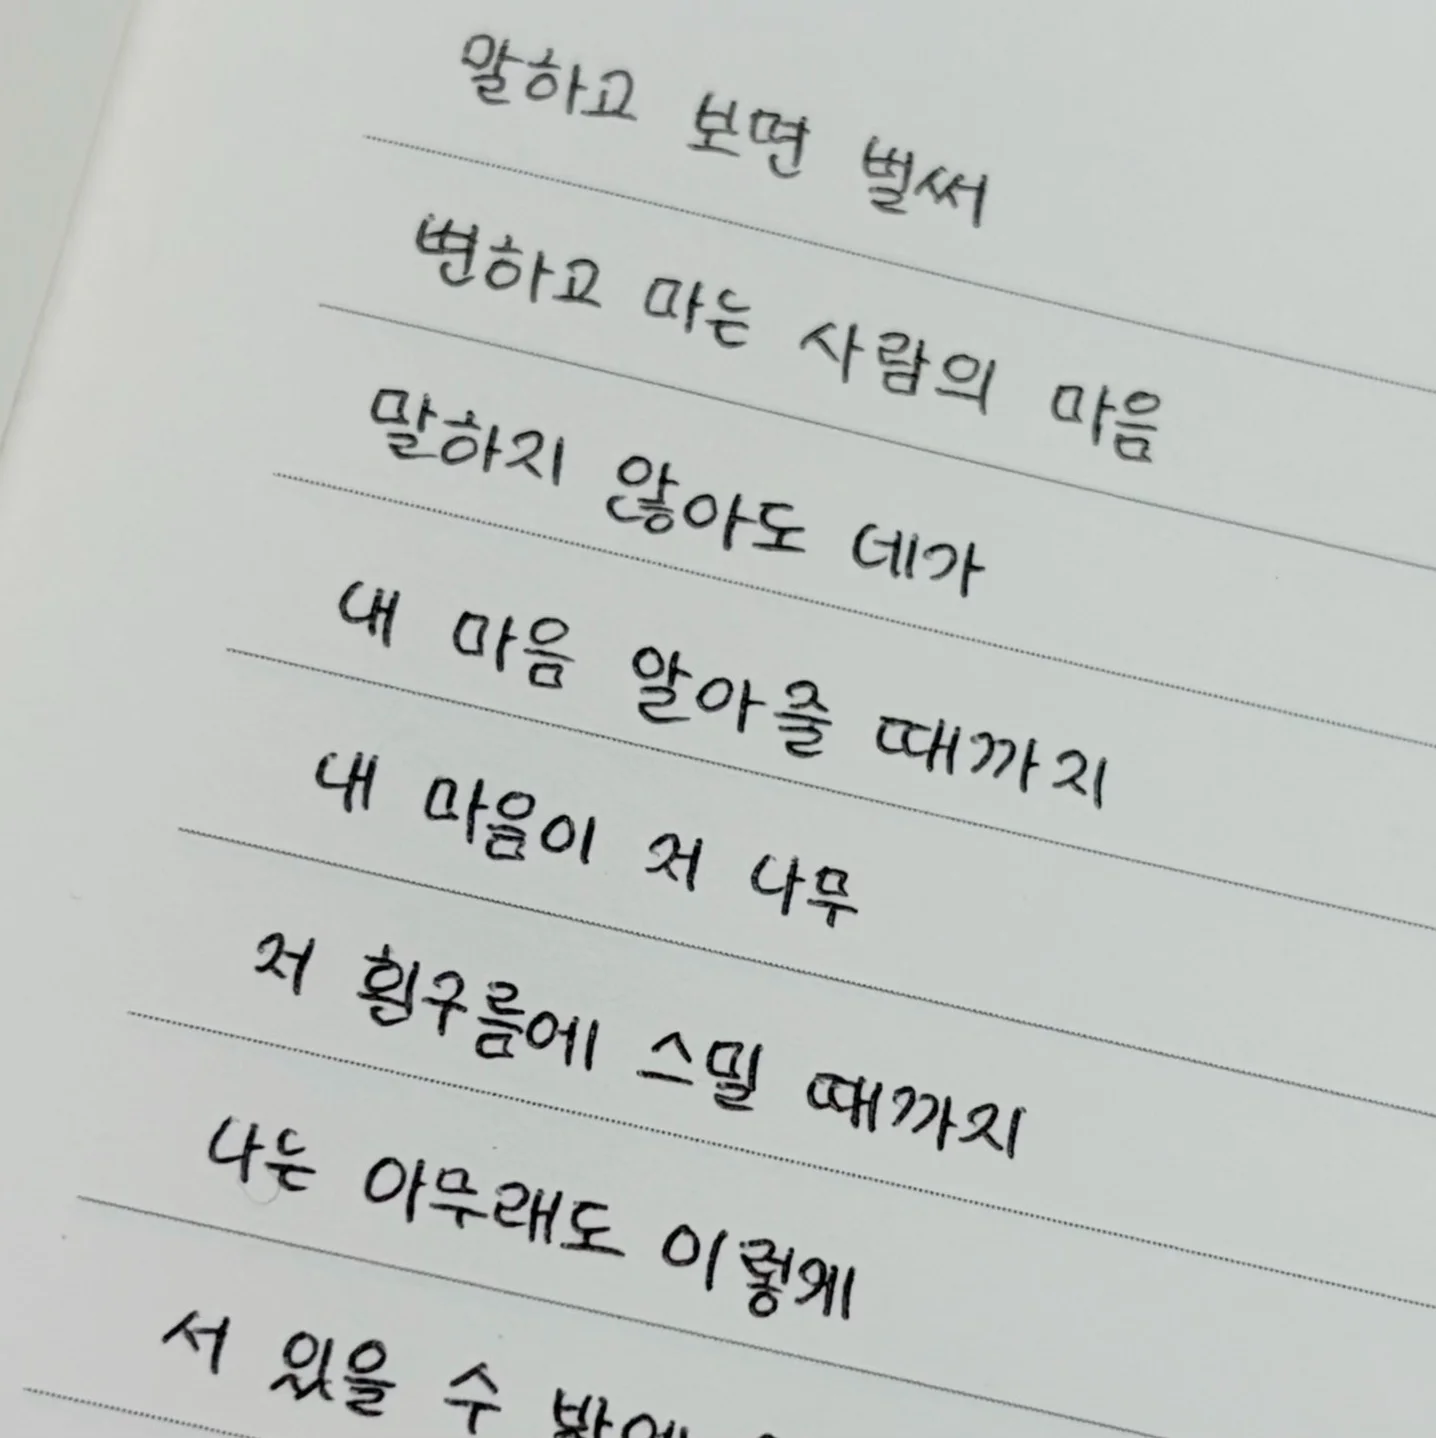 말하고 보면 벌써
변하고 마는 사람의 마음
말하지 않아도 네가
내 마음 알아줄 때까지
내 마음이 저 나무
저 흰구름에 스밀 때까지
나는 아무래도 이렇게
서 있을 수 밖에